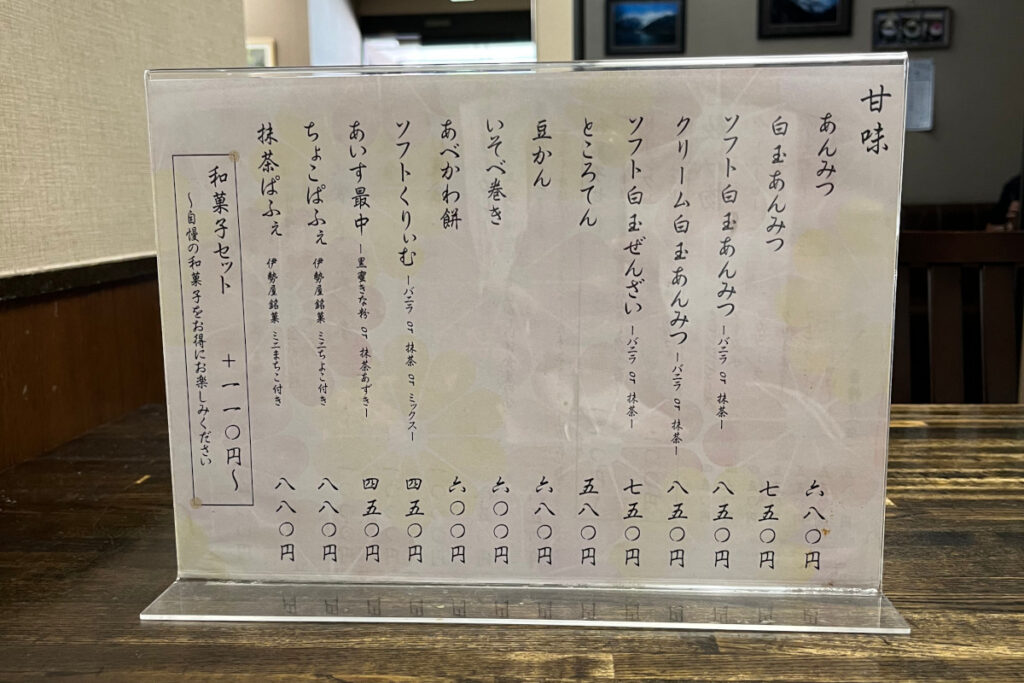 甘味
あんみつ 六八〇円
白玉あんみつ 七五〇円
ソフト白玉あんみつ ーバニラ or 抹茶ー 八五〇円
クリーム白玉あんみつ ーバニラ or 抹茶ー 八五〇円
ソフト白玉ぜんざい ーバニラ or 抹茶ー 七五〇円
ところてん 五八〇円
豆かん 六八〇円
いそべ巻き 六〇〇円
あべかわ餅 六〇〇円
ソフトくりぃむ ーバニラ or 抹茶 or ミックスー 四五〇円
あいす最中 ー黒蜜きな粉 or 抹茶あずきー 四五〇円
ちょこぱふぇ 伊勢屋銘菓 ミニちょこ付き 八八〇円
抹茶ぱふぇ 伊勢屋銘菓 ミニまちこ付き 八八〇円
和菓子セット ＋一一〇円〜
〜自慢の和菓子をお得にお楽しみください